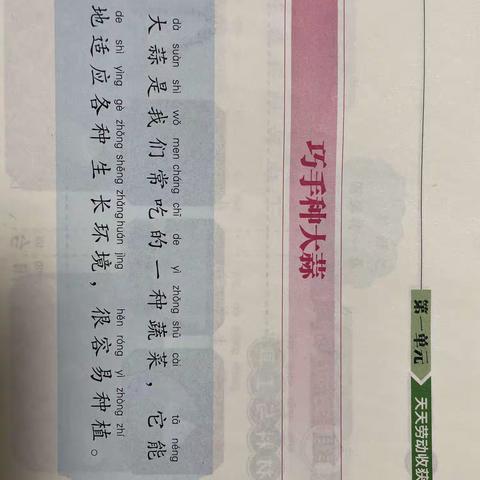 第一单元 天天劳动收获
巧手种大蒜
dà suàn shì wǒ men cháng chī de yì zhǒng shū cài tā néng
大蒜是我们常吃的一种蔬菜，它能
de shì yìng gè zhǒng shēng zhǎng huán jìng hěn róng yì zhòng zhí
地适应各种生长环境，很容易种植。